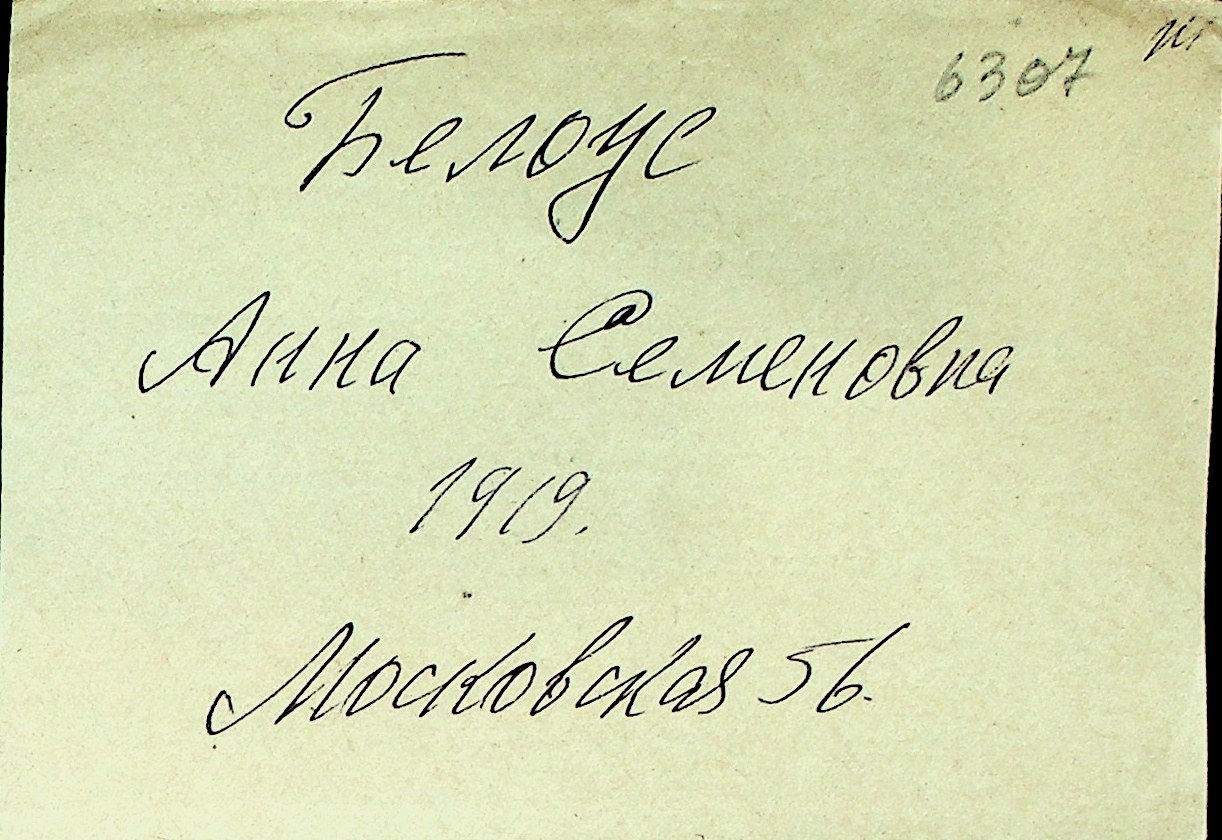 6307
Белоус
Анна Семеновна
1919.
Московская 56.